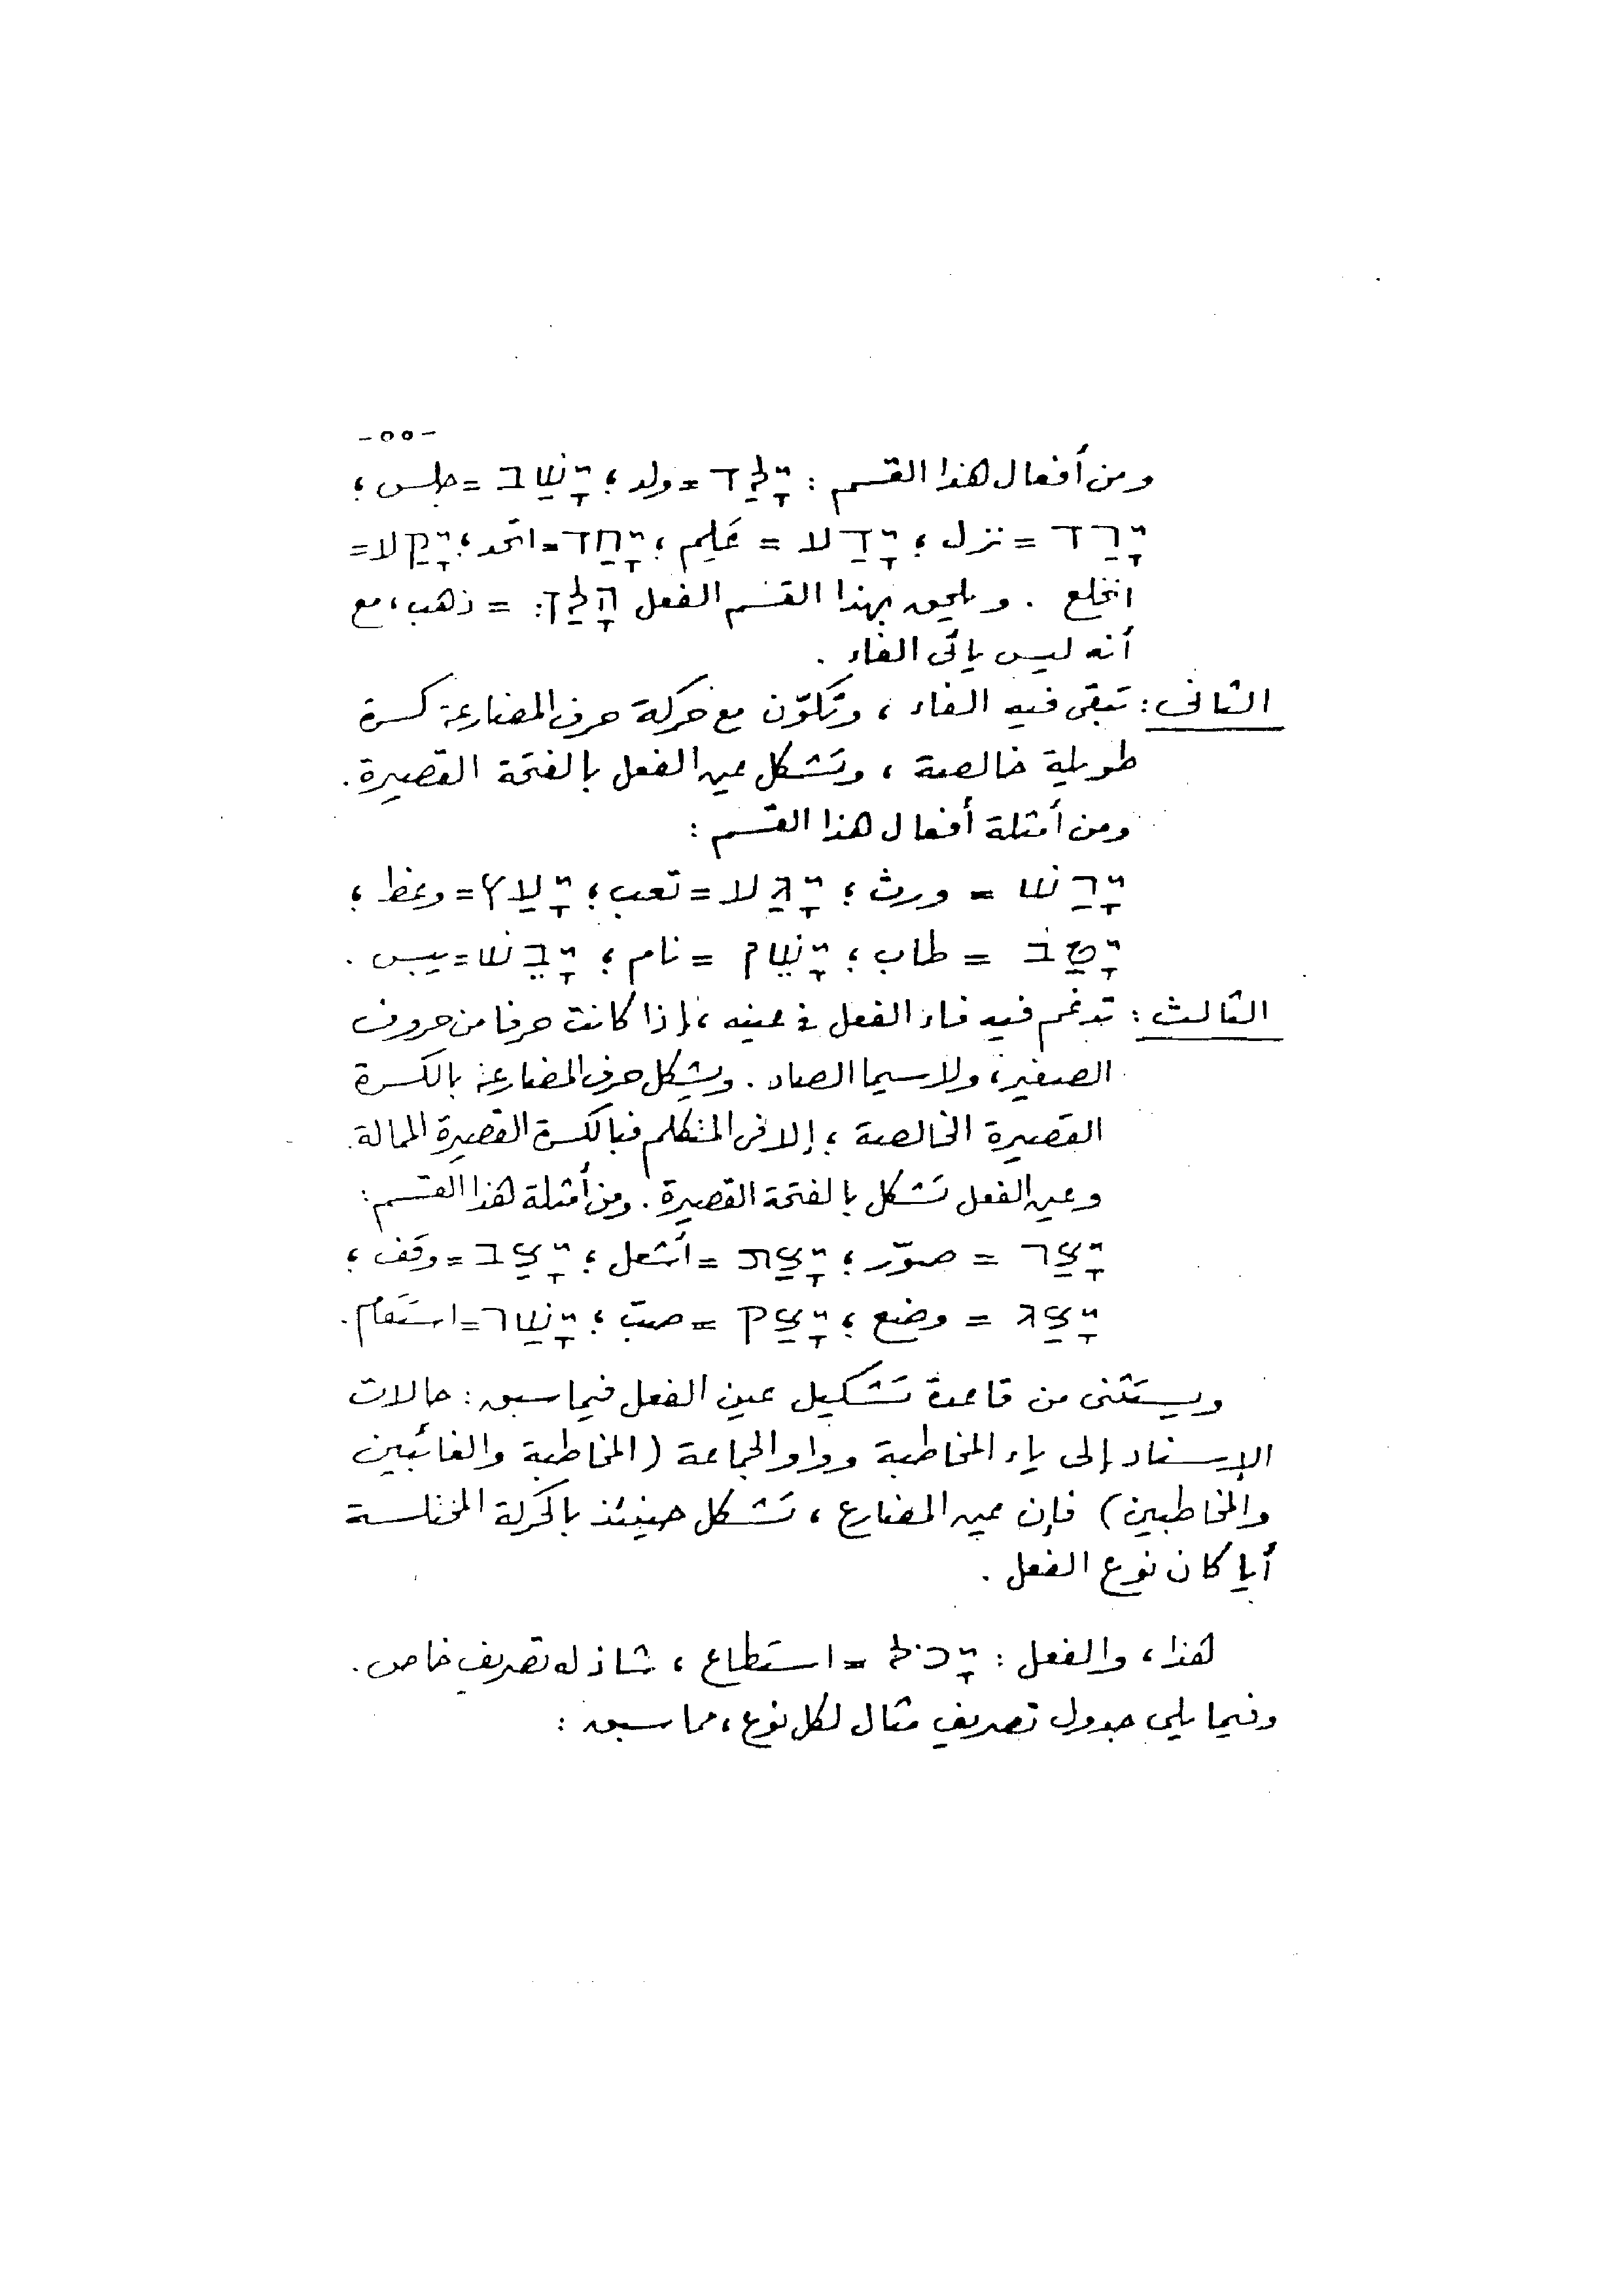 -٥٥-
ومن أفعال هذا القسم : יָלַד = ولد ؛ יָשַׁב = جلس ؛
יָרַד = نزل ؛ יָדַע = عَلِم ؛ יָחַד = اتحد ؛ יָקַע =
انخلع . ويلحق بهذا القسم الفعل הָלַךְ = ذهب ، مع
أنه ليس يائى الفاء .
الثانى : تبقى فيه الفاء ، وتكوّن مع حركة حرف المضارعة كسرة
طويلة خالصة ، وتشكل عين الفعل بالفتحة القصيرة .
ومن أمثلة أفعال هذا القسم :
יָרַשׁ = ورث ؛ יָגַע = تعب ؛ יָעַץ = وعظ ؛
יָטַב = طاب ؛ יָשֵׁן = نام ؛ יָבֵשׁ = يبس .
الثالث : تدغم فيه فاء الفعل فى عينه ، إذا كانت حرفا من حروف
الصفير ، ولاسيما الصاد . ويشكل حرف المضارعة بالكسرة
القصيرة الخالصة ؛ إلا فى المتكلم فبالكسرة القصيرة الممالة .
وعين الفعل تشكل بالفتحة القصيرة . ومن أمثلة هذا القسم :
יָצַר = صوّر ؛ יָצַת = أشعل ؛ יָצַב = وقف ؛
יָצַג = وضع ؛ יָצַק = صبّ ؛ יָשַׁר = استقام .
ويستثنى من قاعدة تشكيل عين الفعل فيما سبق : حالات
الإسناد إلى ياء المخاطبة وواو الجماعة ( المخاطبة والغائبين
والمخاطبين ) فإن عين المضارع ، تشكل حينئذ بالحركة المختلسة
أيا كان نوع الفعل .
هذا ، والفعل : יָכֹל = استطاع ، شاذ له تصريف خاص .
وفيما يلى جدول تصريف مثال لكل نوع ، مما سبق :